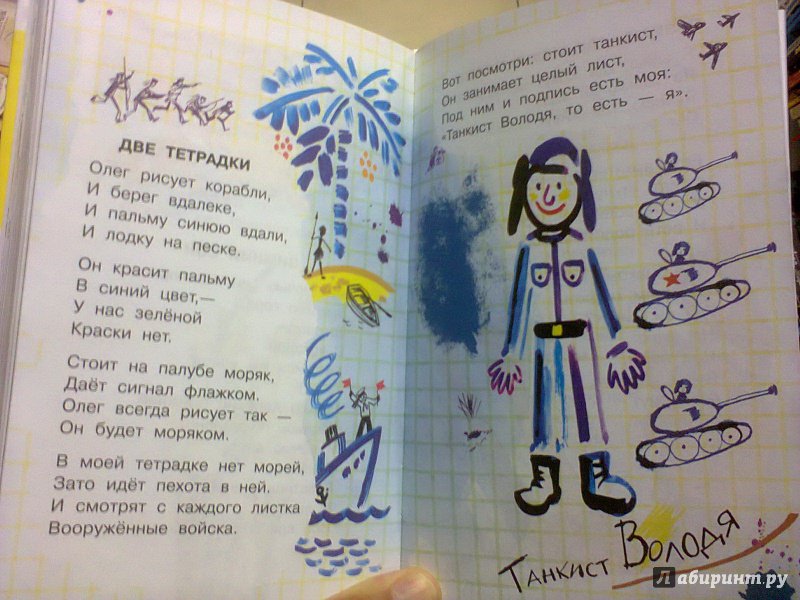 ДВЕ ТЕТРАДКИ
Олег рисует корабли,
И берег вдалеке,
И пальму синюю вдали,
И лодку на песке.
Он красит пальму
В синий цвет,—
У нас зелёной
Краски нет.
Стоит на палубе моряк,
Даёт сигнал флажком.
Олег всегда рисует так —
Он будет моряком.
В моей тетрадке нет морей,
Зато идёт пехота в ней.
И смотрят с каждого листка
Вооружённые войска.
Вот посмотри: стоит танкист,
Он занимает целый лист,
Под ним и подпись есть моя:
«Танкист Володя, то есть — я».
Танкист Володя
Лабиринт.ру